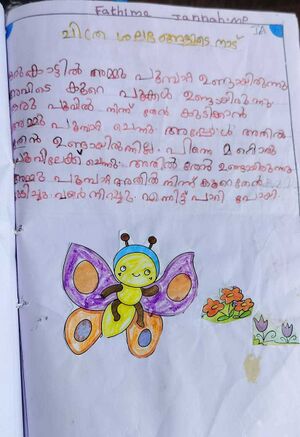 Fathima Jannah.me
1A
ചിത്ര ശലഭങ്ങളുടെ നാട്
ഒരു കാട്ടിൽ അമ്മു പൂമ്പാറ്റ ഉണ്ടായിരുന്നു
അവിടെ കുറെ പൂക്കൾ ഉണ്ടായിരുന്നു
ഒരു പൂവിൽ നിന്ന് തേൻ കുടിക്കാൻ
അമ്മു പൂമ്പാറ്റ ചെന്നു അപ്പോൾ അതിൽ
തേൻ ഉണ്ടായിരുന്നില്ല. പിന്നെ മറ്റൊരു
പൂവിലേക്ക് ചെന്നു. അതിൽ തേൻ ഉണ്ടായിരുന്നു
അമ്മു പൂമ്പാറ്റ അതിൽ നിന്ന് കുറെ തേൻ
കുടിച്ചു. വയർ നിറച്ചു. എന്നിട്ട് പാറി പോയി